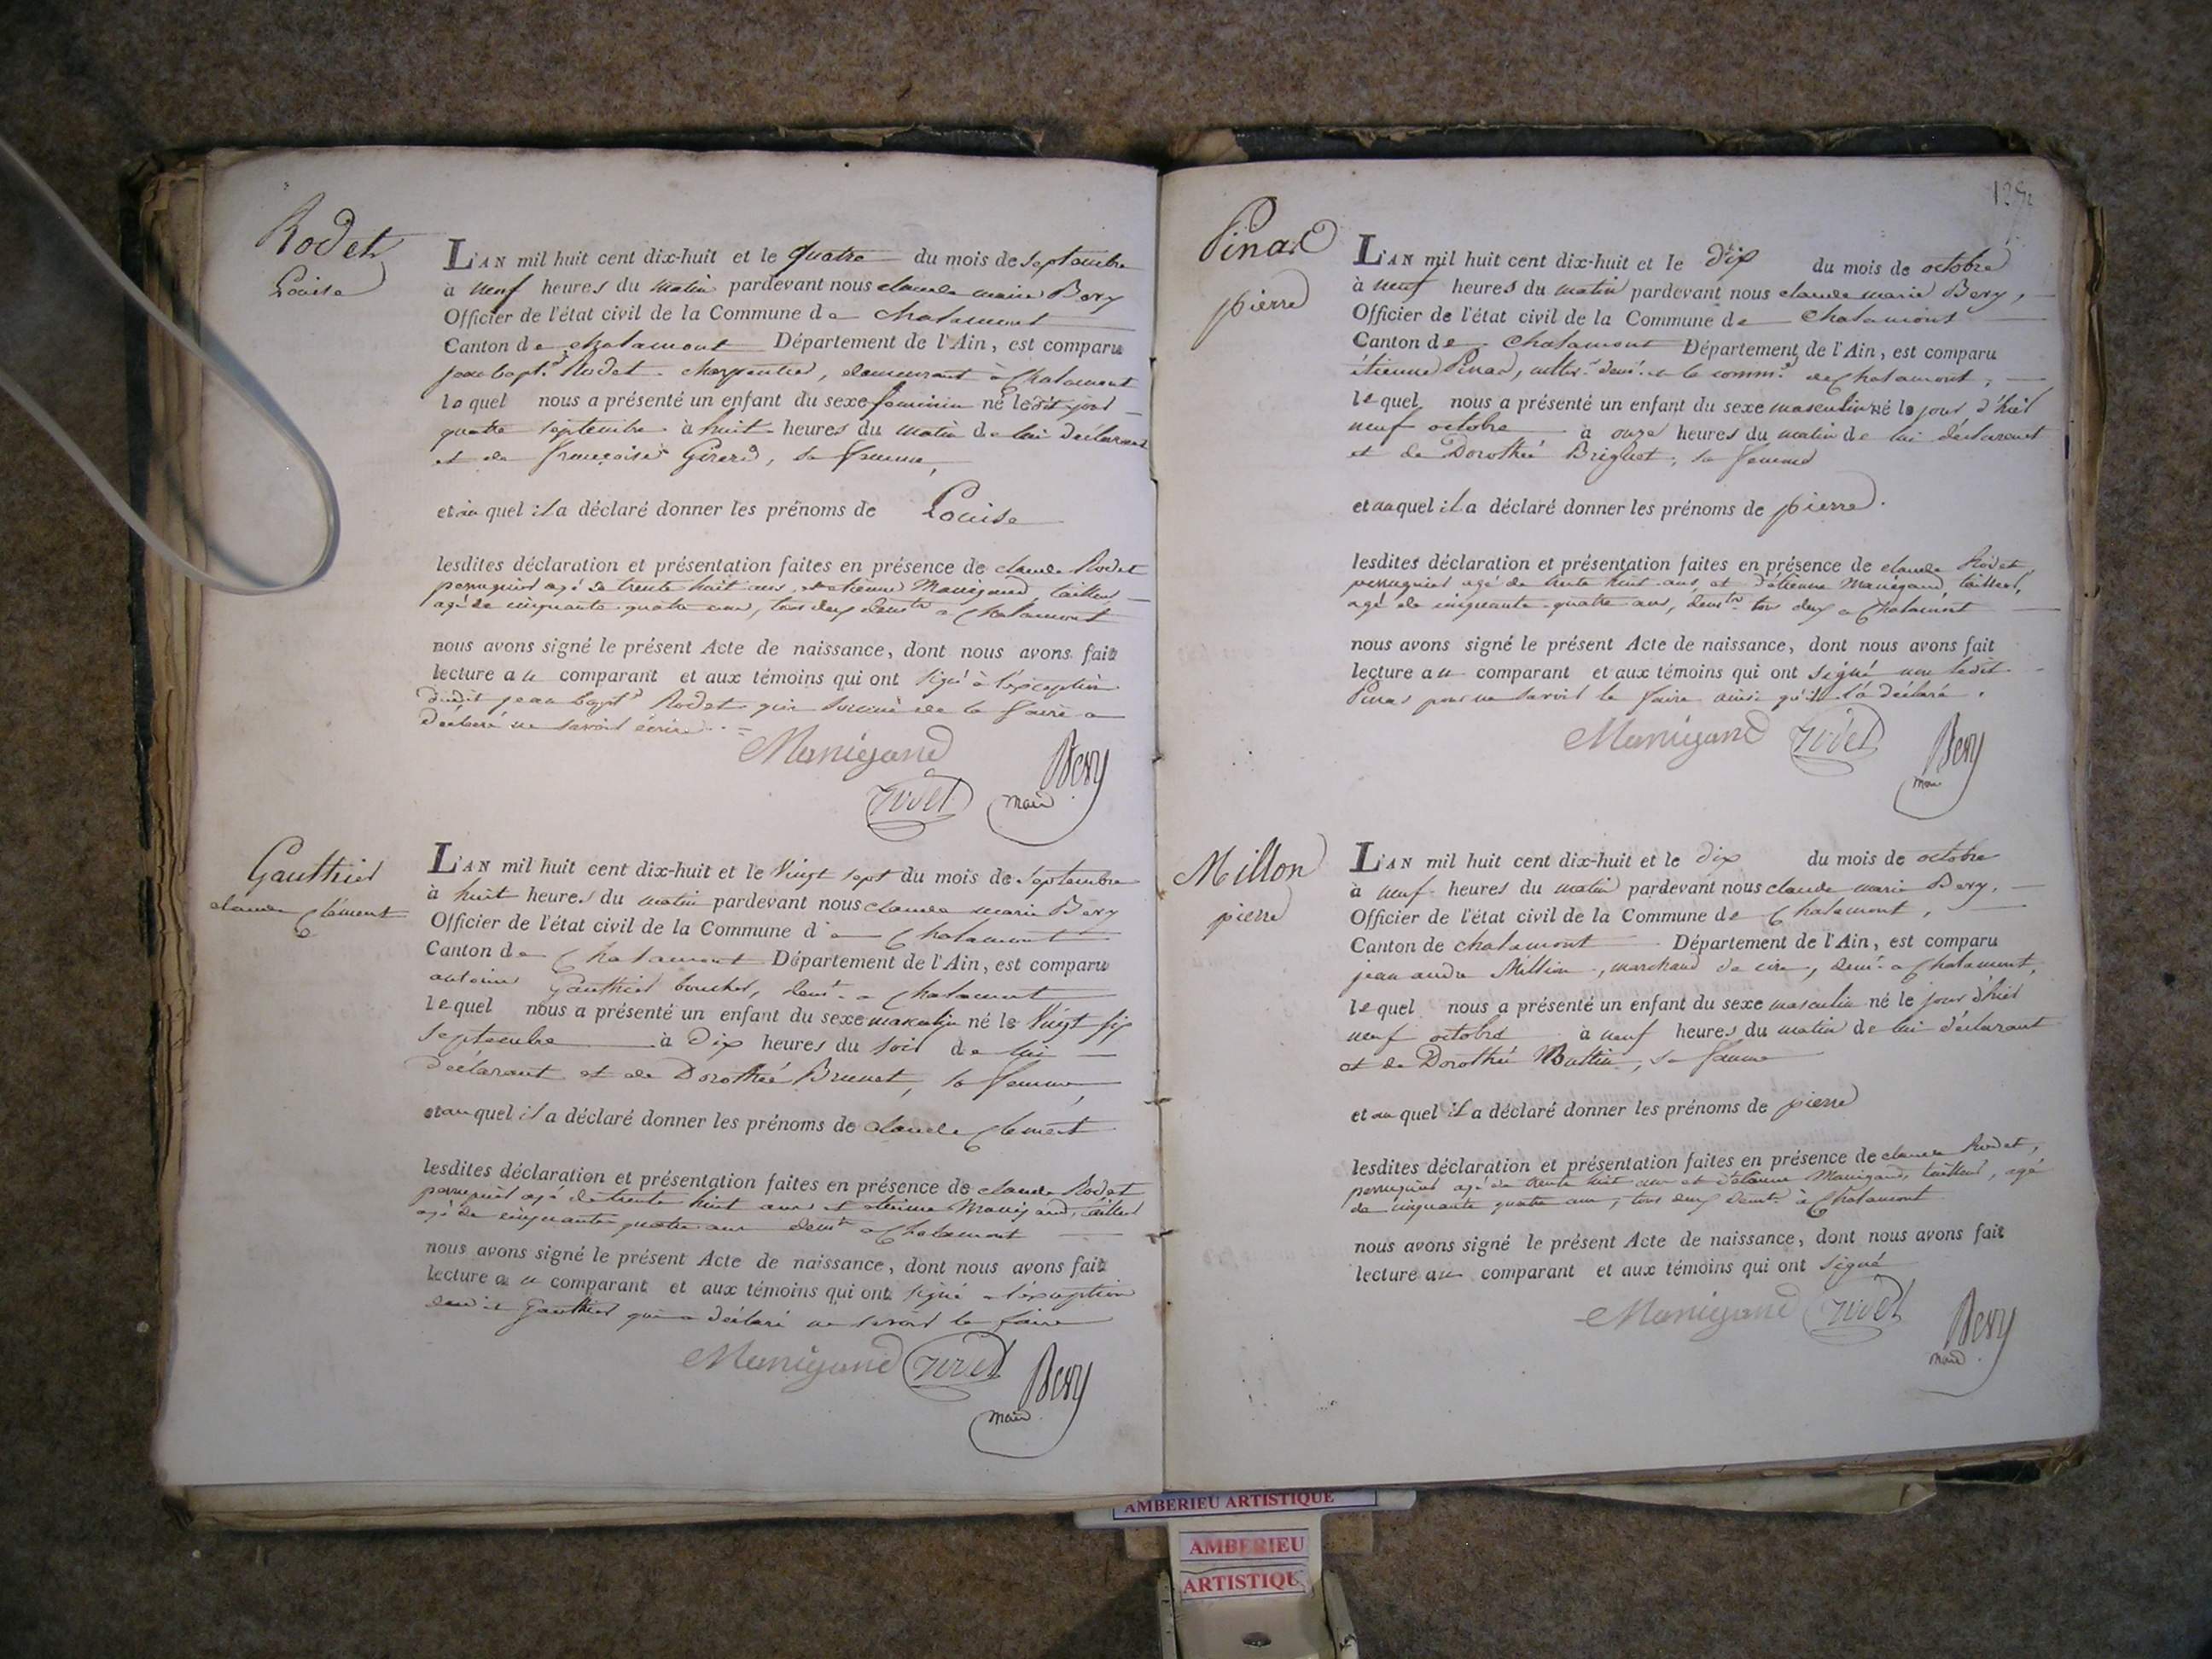 Rodet
Louise
L'AN mil huit cent dix-huit et le quatre du mois de septembre
à neuf heures du matin pardevant nous claude marie Bery
Officier de l'état civil de la Commune de chalamont
Canton de chalamont Département de l'Ain, est comparu
jean bapt.e Rodet charpentier, demeurant à Chalamont
lequel nous a présenté un enfant du sexe feminin né le dit jour
quatre septembre à huit heures du matin de lui déclarant
et de françoise Girerd, sa femme,
et au quel il a déclaré donner les prénoms de Louise
lesdites déclaration et présentation faites en présence de claude Rodet
perruquier agé de trente huit ans, et etienne Manigand, tailleur
agé de cinquante quatre ans, tous deux demt a Chalamont
nous avons signé le présent Acte de naissance, dont nous avons fait
lecture au comparant et aux témoins qui ont signé à l'exception
dudit jean bapt.e Rodet qui de le faire a
déclaré ne savoir écrire
Manigand
Rodet
Bery
maire
Gauthier
claude Clément
L'AN mil huit cent dix-huit et le Vingt sept du mois de Septembre
à huit heures du matin pardevant nous claude marie Bery
Officier de l'état civil de la Commune de Chalamont
Canton de Chalamont Département de l'Ain, est comparu
antoine Gauthier boucher, demt a Chalamont
lequel nous a présenté un enfant du sexe masculin né le Vingt six
Septembre à Dix heures du soir de lui
déclarant et de Dorothée Brunet, sa femme,
et au quel il a déclaré donner les prénoms de claude Clement
lesdites déclaration et présentation faites en présence de claude Rodet
perruquier agé de trente huit ans et etienne Manigand, tailleur
agé de cinquante quatre ans demt a Chalamont
nous avons signé le présent Acte de naissance, dont nous avons fait
lecture au comparant et aux témoins qui ont signé a l'exception
dudit Gauthier qui a déclaré ne savoir le faire
Manigand Rodet Bery
maire
Pinad
pierre
L'AN mil huit cent dix-huit et le dix du mois de octobre
à neuf heures du matin pardevant nous claude marie Bery,
Officier de l'état civil de la Commune de Chalamont
Canton de Chalamont Département de l'Ain, est comparu
étienne Pinad, cultivr demt a la commne de Chalamont,
lequel nous a présenté un enfant du sexe masculin né le jour d'hier
neuf octobre à onze heures du matin de lui déclarant
et de Dorothée Briguet, sa femme
et auquel il a déclaré donner les prénoms de pierre.
lesdites déclaration et présentation faites en présence de claude Rodet,
perruquier agé de trente huit ans, et d'étienne Manigand, tailleur,
agé de cinquante quatre ans, demt tous deux a Chalamont
nous avons signé le présent Acte de naissance, dont nous avons fait
lecture au comparant et aux témoins qui ont signé non ledit
Pinad pour ne savoir le faire ainsi qu'il l'a déclaré.
Manigand Rodet Bery
maire
Millon
pierre
L'AN mil huit cent dix-huit et le dix du mois de octobre
à neuf heures du matin pardevant nous claude marie Bery,
Officier de l'état civil de la Commune de Chalamont,
Canton de chalamont Département de l'Ain, est comparu
jean andre Million, marchand de cire, demt a Chalamont,
lequel nous a présenté un enfant du sexe masculin né le jour d'hier
neuf octobre à neuf heures du matin de lui déclarant
et de Dorothée sa femme
et au quel il a déclaré donner les prénoms de pierre
lesdites déclaration et présentation faites en présence de claude Rodet,
perruquier agé de trente huit ans et d'etienne Manigand, tailleur, agé
de cinquante quatre ans, tous deux demt à Chalamont
nous avons signé le présent Acte de naissance, dont nous avons fait
lecture au comparant et aux témoins qui ont signé
Manigand Rodet Bery
maire
AMBERIEU ARTISTIQUE
AMBERIEU
ARTISTIQU